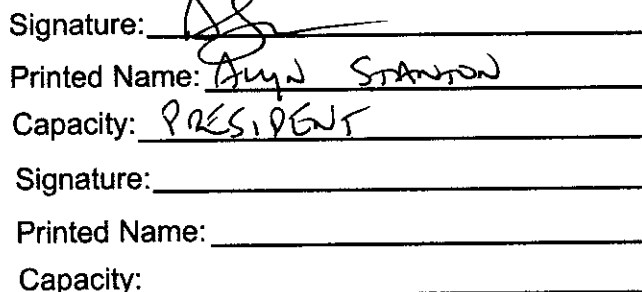 Signature:
Printed Name: ALYN STANTON
Capacity: PRESIDENT
Signature:
Printed Name:
Capacity: